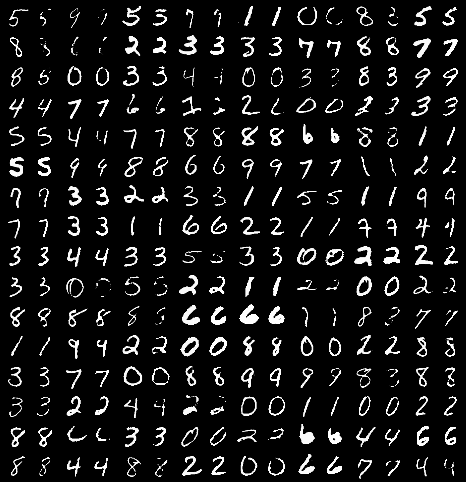 5 5 9 9 5 5 7 9 1 1 0 0 8 8 5 5
8 8 6 6 2 2 3 3 3 3 7 7 8 8 7 7
8 8 0 0 3 3 4 4 0 0 3 3 8 3 9 9
4 4 7 7 6 6 2 2 2 2 0 0 2 3 3 3
5 5 4 4 7 7 8 8 8 8 6 6 8 8 1 1
5 5 9 9 8 8 6 6 9 9 7 7 1 1 2 2
7 9 3 3 2 2 3 3 1 1 5 5 1 1 9 9
7 7 3 3 1 1 6 6 2 2 1 1 7 7 4 4
3 3 4 4 3 3 5 5 3 3 0 0 2 2 2 2
3 3 0 0 5 5 2 2 1 1 2 2 0 0 2 2
8 8 8 8 8 8 6 6 6 6 1 1 8 8 7 7
1 1 9 9 2 2 0 0 8 8 0 0 2 2 8 8
3 3 7 7 0 0 8 8 9 9 9 9 8 8 8 8
3 3 2 2 4 4 2 2 0 0 1 1 0 0 2 2
8 8 6 6 3 3 0 0 2 2 6 6 4 4 6 6
8 8 4 4 8 8 2 2 0 0 6 6 7 7 4 4